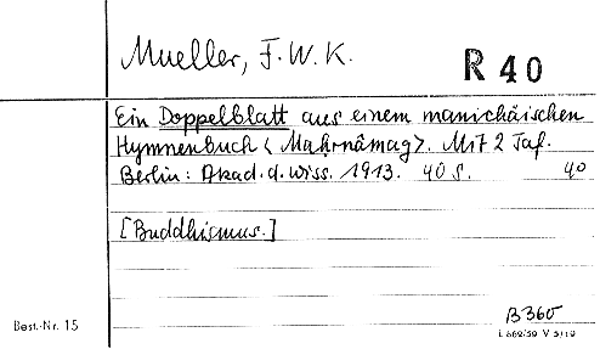 Mueller, F. W. K.
R 40
Ein Doppelblatt aus einem manichäischen
Hymnenbuch < Maḥrnâmag >. Mit 2 Taf.
Berlin: Akad. d. Wiss. 1913. 40 S. 40
[Buddhismus.]
B360
Best.-Nr. 15
L 662/59 V 5/10